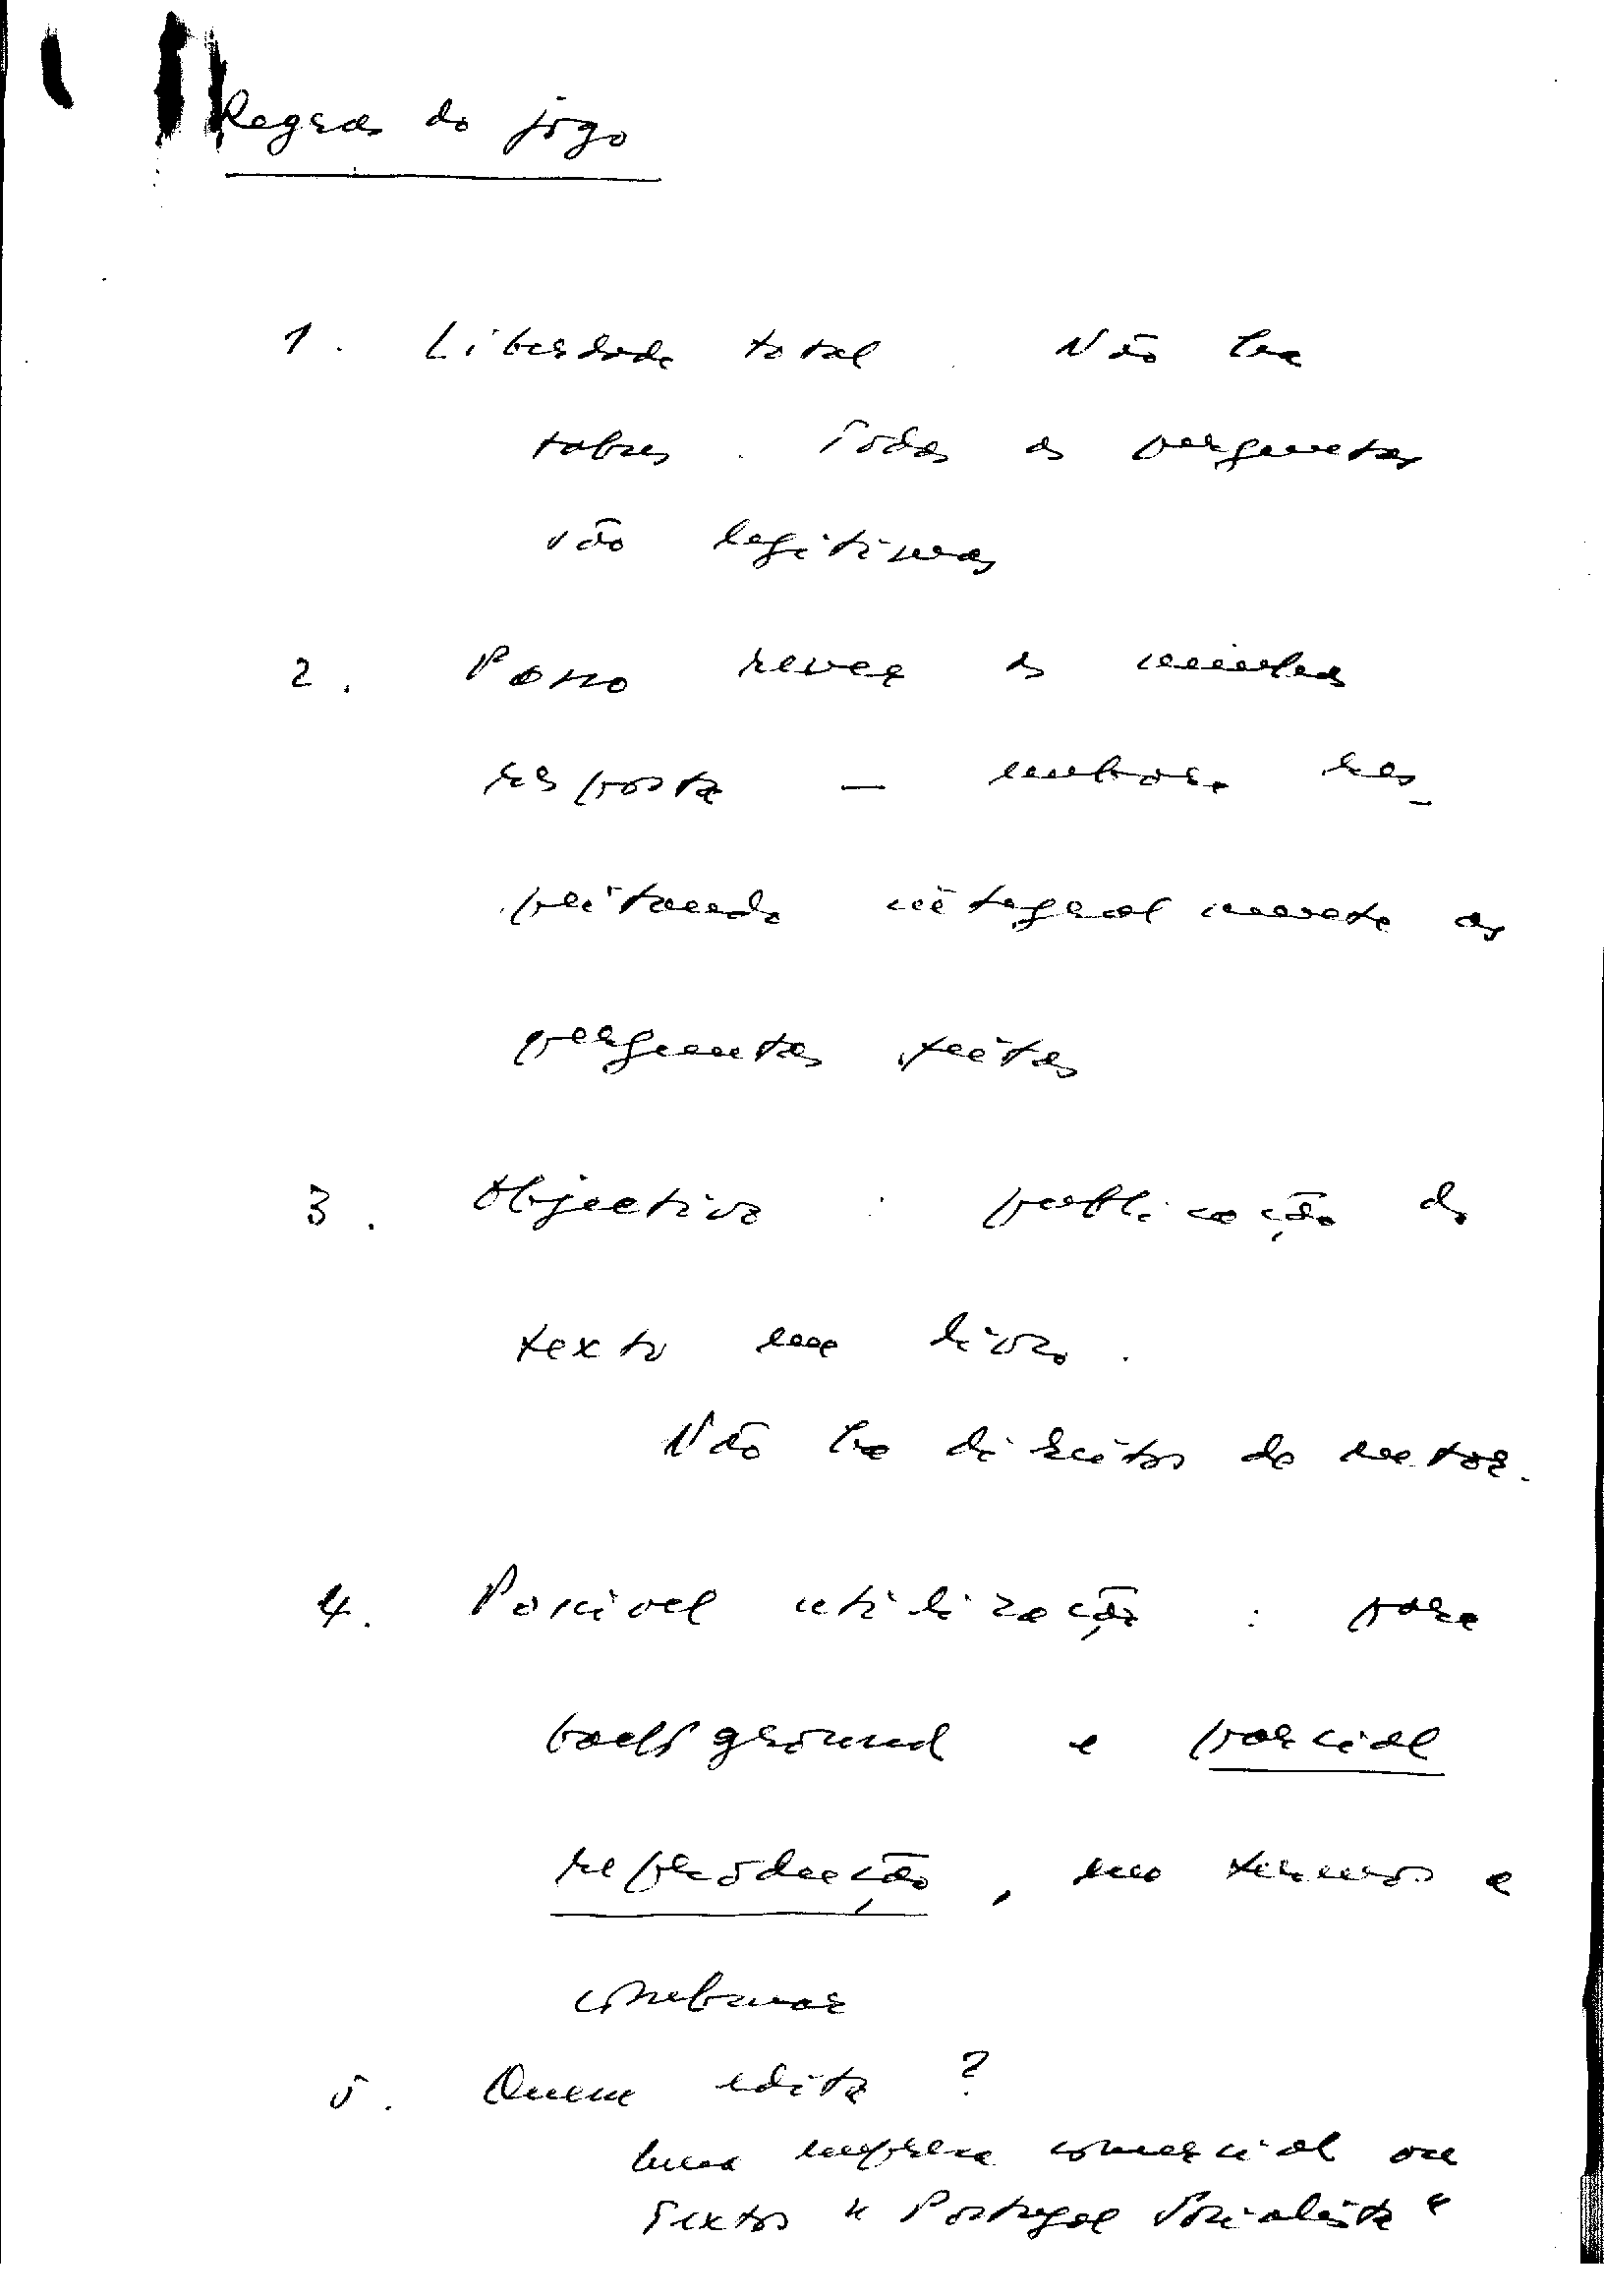 Regras do jogo
1. Liberdade total. Não há
tabus. Todas as perguntas
são legítimas
2. Posso rever as minhas
resposta — embora res-
peitando integralmente as
perguntas feitas
3. Objectivo: publicação do
texto em livro.
Não há direitos de autor.
4. Possível utilização: para
background e parcial
reprodução, em termos a
combinar
5. Quem edita?
Uma empresa comercial ou
Textos "Portugal Socialista"